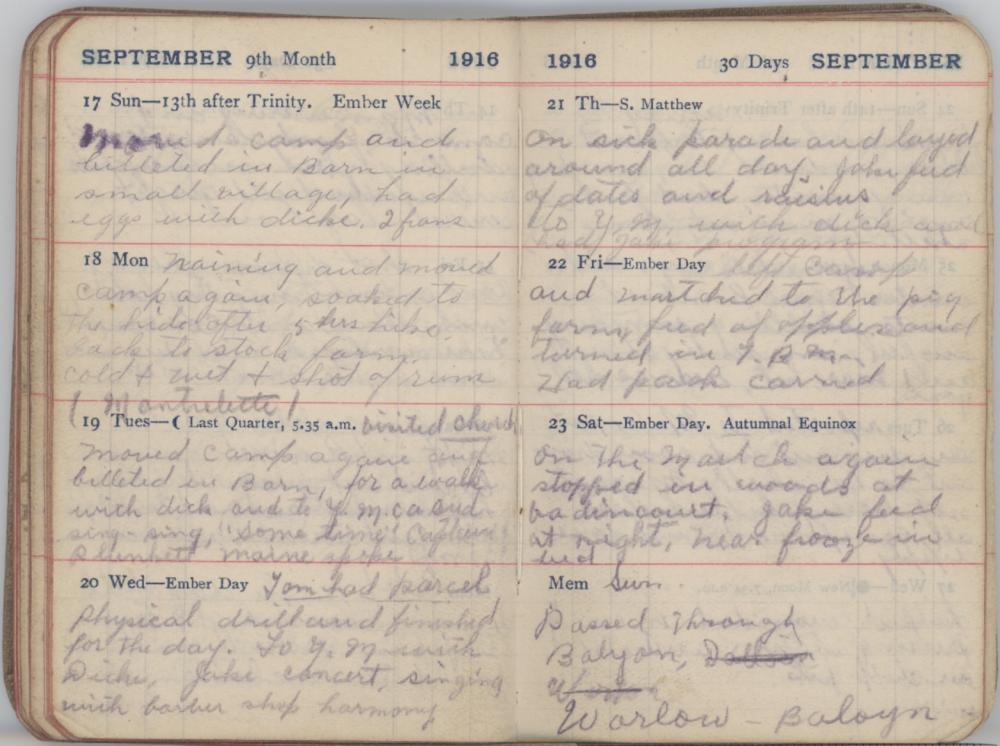 SEPTEMBER 9th Month 1916
17 Sun—13th after Trinity. Ember Week
Moved camp and
billeted in Barn in
small village, had
eggs with dicke. 2 frans
18 Mon Training and moved
camp again, soaked to
the hide after 5 hrs hike
back to stock farm
cold & wet & shot of rum
(Montrelette)
19 Tues—( Last Quarter, 5.35 a.m. visited church
moved camp again and
billeted in Barn, for a walk
with dick and to Y.m.ca and
sing-sing, "some time" Captain
Plunkett maine spoke
20 Wed—Ember Day Tom had parcel
Physical drill and finished
for the day. To Y.M with
Dicke, Jake concert, singing
with barber shop harmony
1916 30 Days SEPTEMBER
21 Th—S. Matthew
on sick parade and layed
around all day. Jake feed
of dates and raisins
to Y.M. with dick and
had Jake program
22 Fri—Ember Day left camp
and martched to the pig
farm, feed of apples and
turned in 7. P.M.
Had pack carried
23 Sat—Ember Day. Autumnal Equinox
on the Martch again
stopped in woods at
badincourt. Jake feed
at night, near frooze in
bed
Mem Sun
Passed through
Balyon,
Warlow - Baloyn